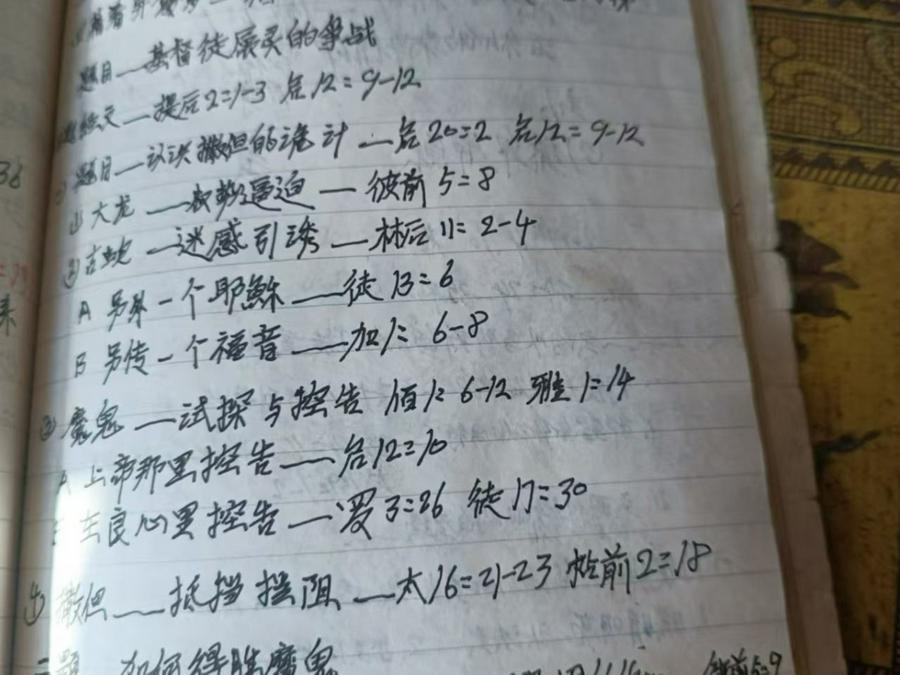 题目——基督徒属灵的争战
经文——提后2=1-3 启12=9-12
题目——认识撒但的诡计——启20=2 启12=9-12
①大龙——权势逼迫——彼前5=8
②古蛇——迷惑引诱——林后11=2-4
A 另外一个耶稣——徒13=6
B 另传一个福音——加1=6-8
③魔鬼——试探与控告 伯1=6-12 雅1=14
A 上帝那里控告——启12=10
在良心里控告——罗3=26 徒17=30
④撒但——抵挡拦阻——太16=21-23 帖前2=18
题 如何得胜魔鬼